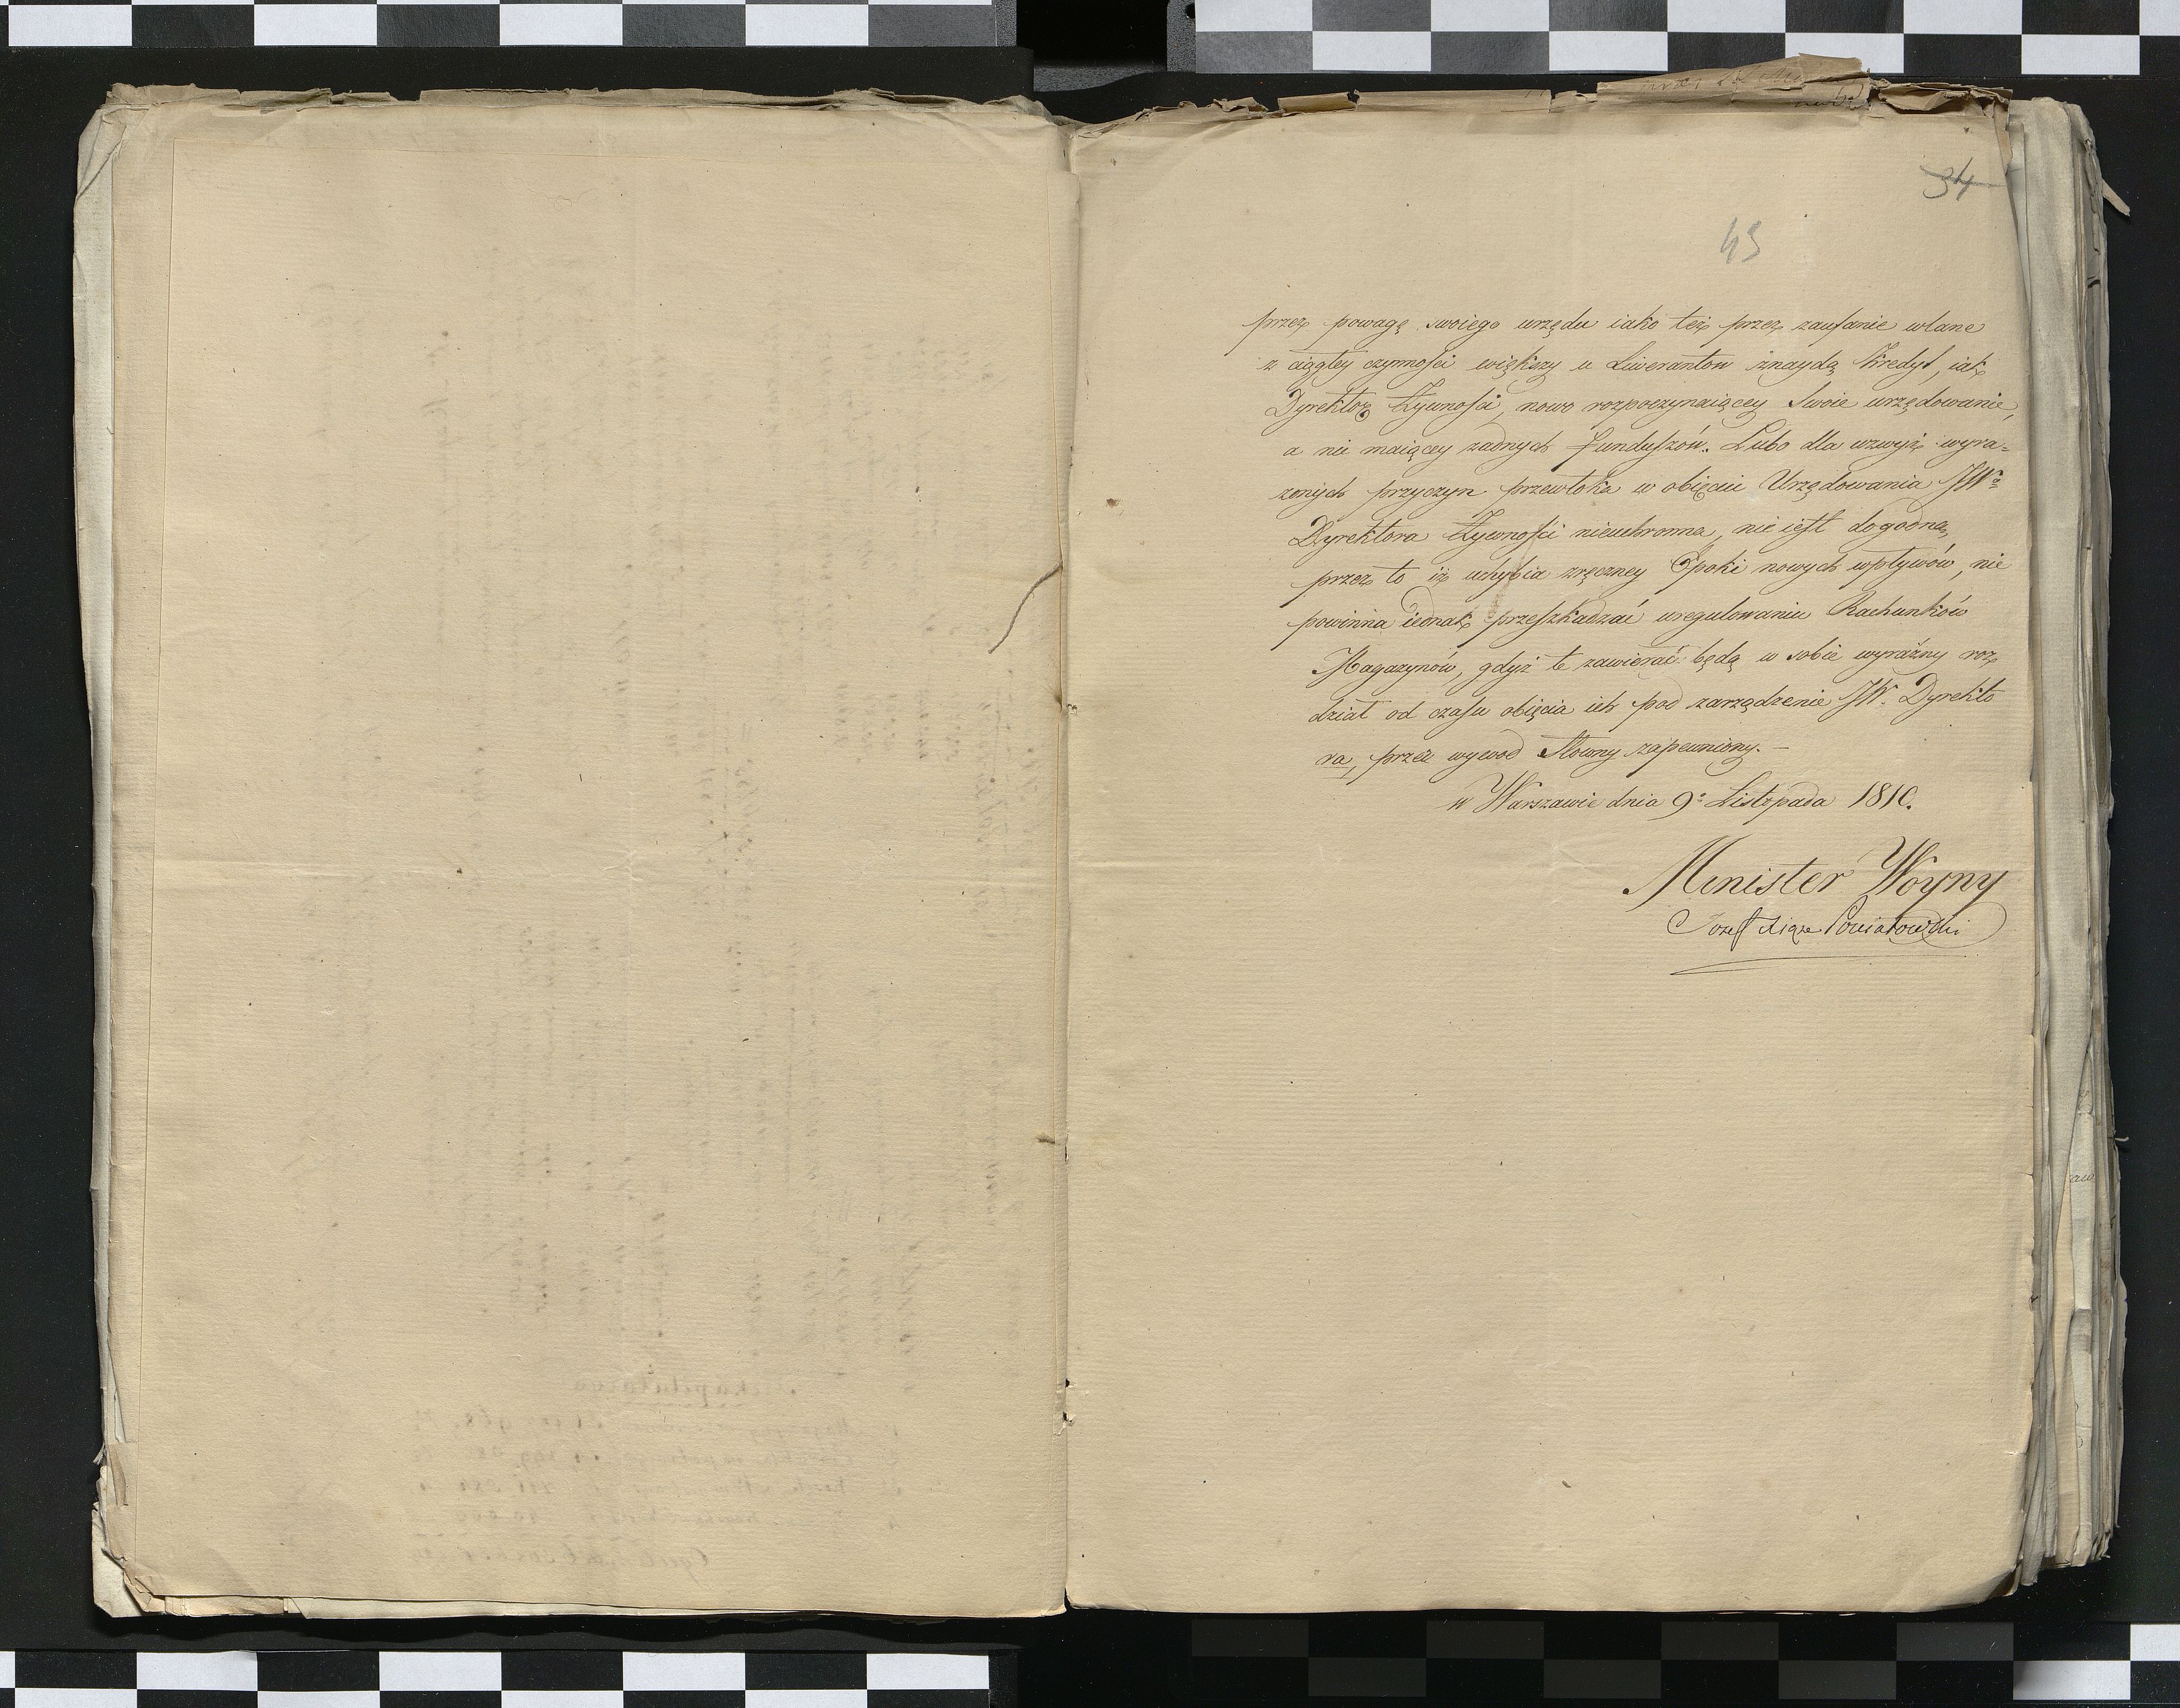 34
43
przez powagę swoiego urzędu iako też przez zaufanie wlane
z ciągłey czynności większy u Liwerantow znaydą Kredyt, iak
Dyrektor Żywności, nowo rozpoczynaiącey Swoie urzędowanie,
a nie maiącey żadnych funduszów. Lubo dla wzwyż wyra=
żonych przyczyn przewłoka w obięciu Urzędowania JWo
Dyrektora Żywności nieuchronna, nie iest dogodna,
przez to iż uchybia zręczney Epoki nowych wpływów, nie
powinna iednak przeszkadzać uregulowaniu Rachunków
Magazynów, gdyż te zawierać będą w sobie wyraźny roz
dział od czasu obięcia ich pod zarządzenie JW. Dyrekto
ra, przez wywod Słowny zapewniony. –
w Warszawie dnia 9o Listopada 1810.
Minister Woyny
Jozef Xiąże Poniatowski